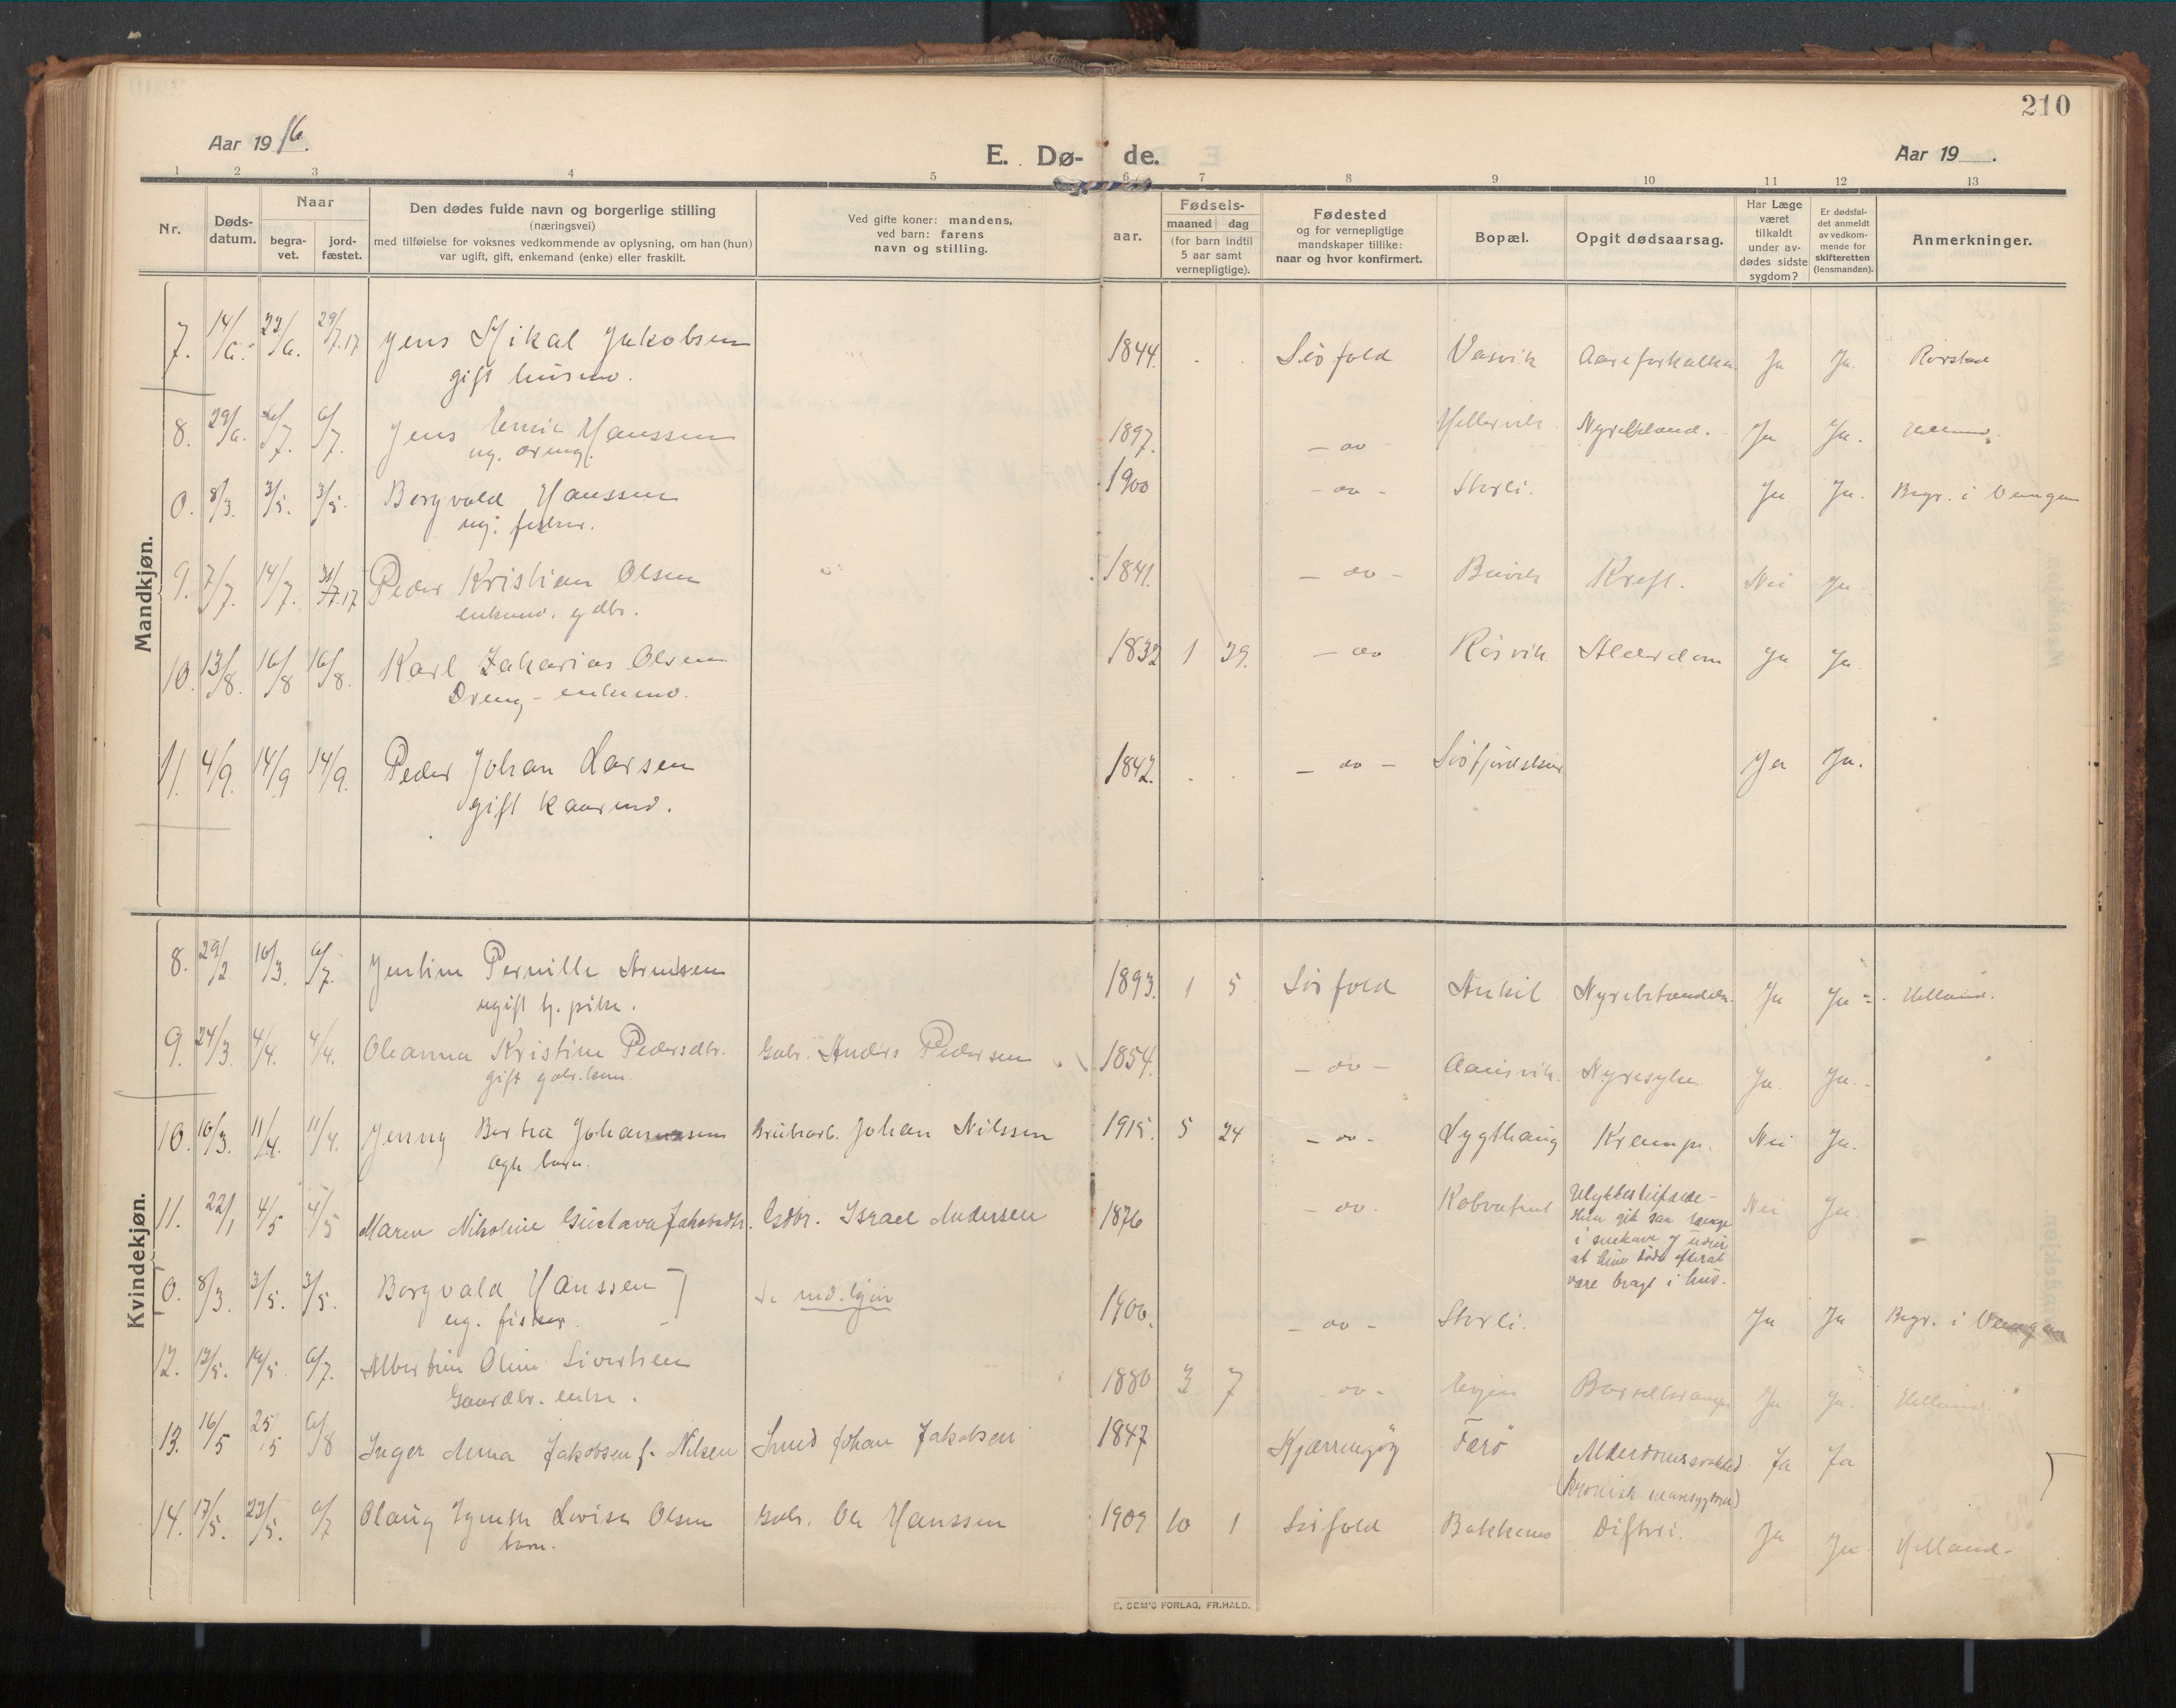 210
Aar 1916.
E. Dø- de.
Aar 19 .
1 2 3 4 5 6 7 8 9 10 11 12 13
Nr.
Døds-
datum.
Naar
begra-
vet.
jord-
fæstet.
Den dødes fulde navn og borgerlige stilling
(næringsvei)
med tilføielse for voksnes vedkommende av oplysning, om han (hun)
var ugift, gift, enkemand (enke) eller fraskilt.
Ved gifte koner: mandens,
ved barn: farens
navn og stilling.
Fødsels-
aar.
maaned dag
(for barn indtil
5 aar samt
vernepligtige).
Fødested
og for vernepligtige
mandskaper tillike:
naar og hvor konfirmert.
Bopæl.
Opgit dødsaarsag.
Har Læge
været
tilkaldt
under av-
dødes sidste
sygdom?
Er dødsfal-
det anmeldt
av vedkom-
mende for
skifteretten
(lensmanden).
Anmerkninger.
Mandkjøn.
7. 14/6. 22/6. 29/7.17 Jens Mikal Jakobsen 1844. Sörfold Vasvik Aareforkalkn. Ja Ja. Rørstad
gift husmd.
8. 29/6. 6/7. 6/7. Jens Hansen 1897. - do - Hellarvik Ja Ja.
ug. dreng.
0. 8/3. 3/5. 3/5. Borgvald Hanssen 1900 - do - Storli. Ja Ja. Begr. i
ug. fisker.
9. 7/7. 14/7. 31/7.17 Peder Kristian Olsen 1841. - do - Kreft. Nei Ja.
enkemd. gdbr.
10. 13/8. 16/8 16/8. Karl Zakarias Olsen 1832 1 29. - do Rösvik Alderdom Ja Ja.
Dreng - enkemd.
11. 4/9. 14/9 14/9. Peder Johan Larsen 1842. - do - Ja Ja.
gift kaarmd.
Kvindekjøn.
8. 29/2 10/3. 6/7. Jentine Pernille Arntsen 1893. 1 5 Sörfold Ja Ja Helland.
ugift tj. pike.
9. 24/3 4/4. 4/4. Oleanna Kristine Pedersdtr. Gbr. Anders Pedersen 1854. - do - Aansvik. Nyresyke. Ja. Ja.
gift gdbr.kone.
10. 10/3. 11/4. 11/4. Jenny Berta Johannessen Grubearb. Johan Nilssen 1915. 5 24 - do - Lygthaug Krampe. Nei Ja.
Ægte barn.
11. 22/1 4/5 4/5 Maren Nikoline Gustava Jakobsdtr. Gdbr. Israel Andersen 1876 - do. Kobvatnet Ulykkestilfælde - Nei Ja.
Hun gik saa længe
i snekave og uveir
at hun døde efterat
være bragt i hus.
0. 8/3. 3/5. 3/5. Borgvald Hanssen Se md.kjön 1900. - do - Storli. Ja Ja Begr. i
ug. fisker.
12. 19/5. 6/7. Albertine Oline Sivertsen 1880 3 7 - do - Ja Ja. Helland
Gaardbr. enke.
13. 16/5 25/5 6/8 Inger Anna Jakobsen f. Nilsen Smed Johan Jakobsen 1847 Kjærringöy Færö Alderdomssvakhed Ja Ja
(kronisk )
14. 17/5. 22/5. 6/7 Olaug Lovise Olsen Gdbr. Ole Hanssen 1909 10 1 Sörfold Bakkemo Difteri. Ja Ja Helland.
barn.
E. SEM'S FORLAG, FR.HALD.